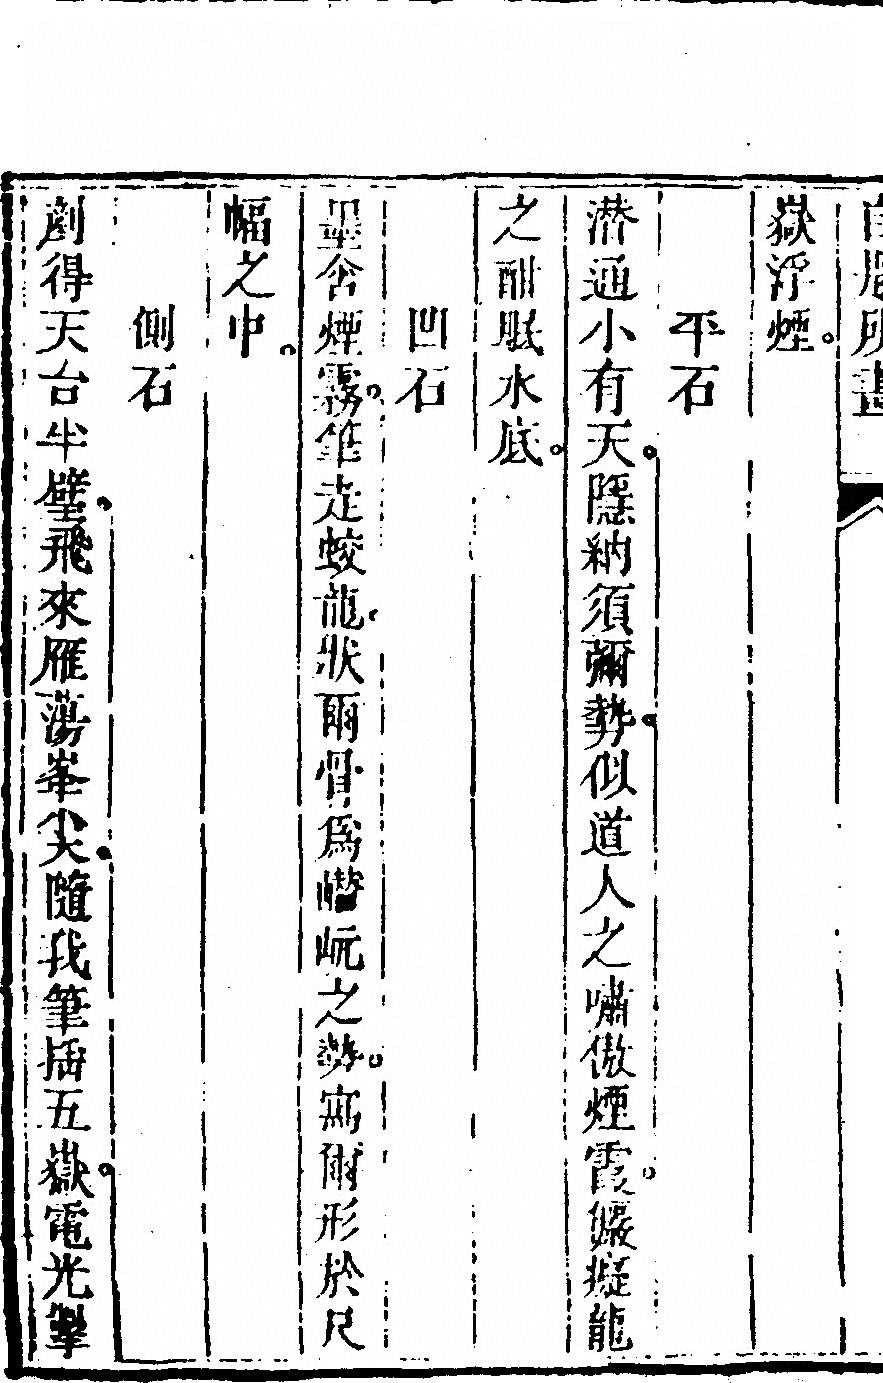 嶽浮煙。
平石
潜通小有天。隱納須彌勢。似道人之嘯傲煙霞。儼擬龍
之酣眠水底。
凹石
墨含煙霧。筆走蛟龍。狀爾骨爲巑岏之勢。寫爾形於尺
幅之中。
側石
得天台半壁。飛來雁蕩峯尖。隨我筆插五嶽。電光掣